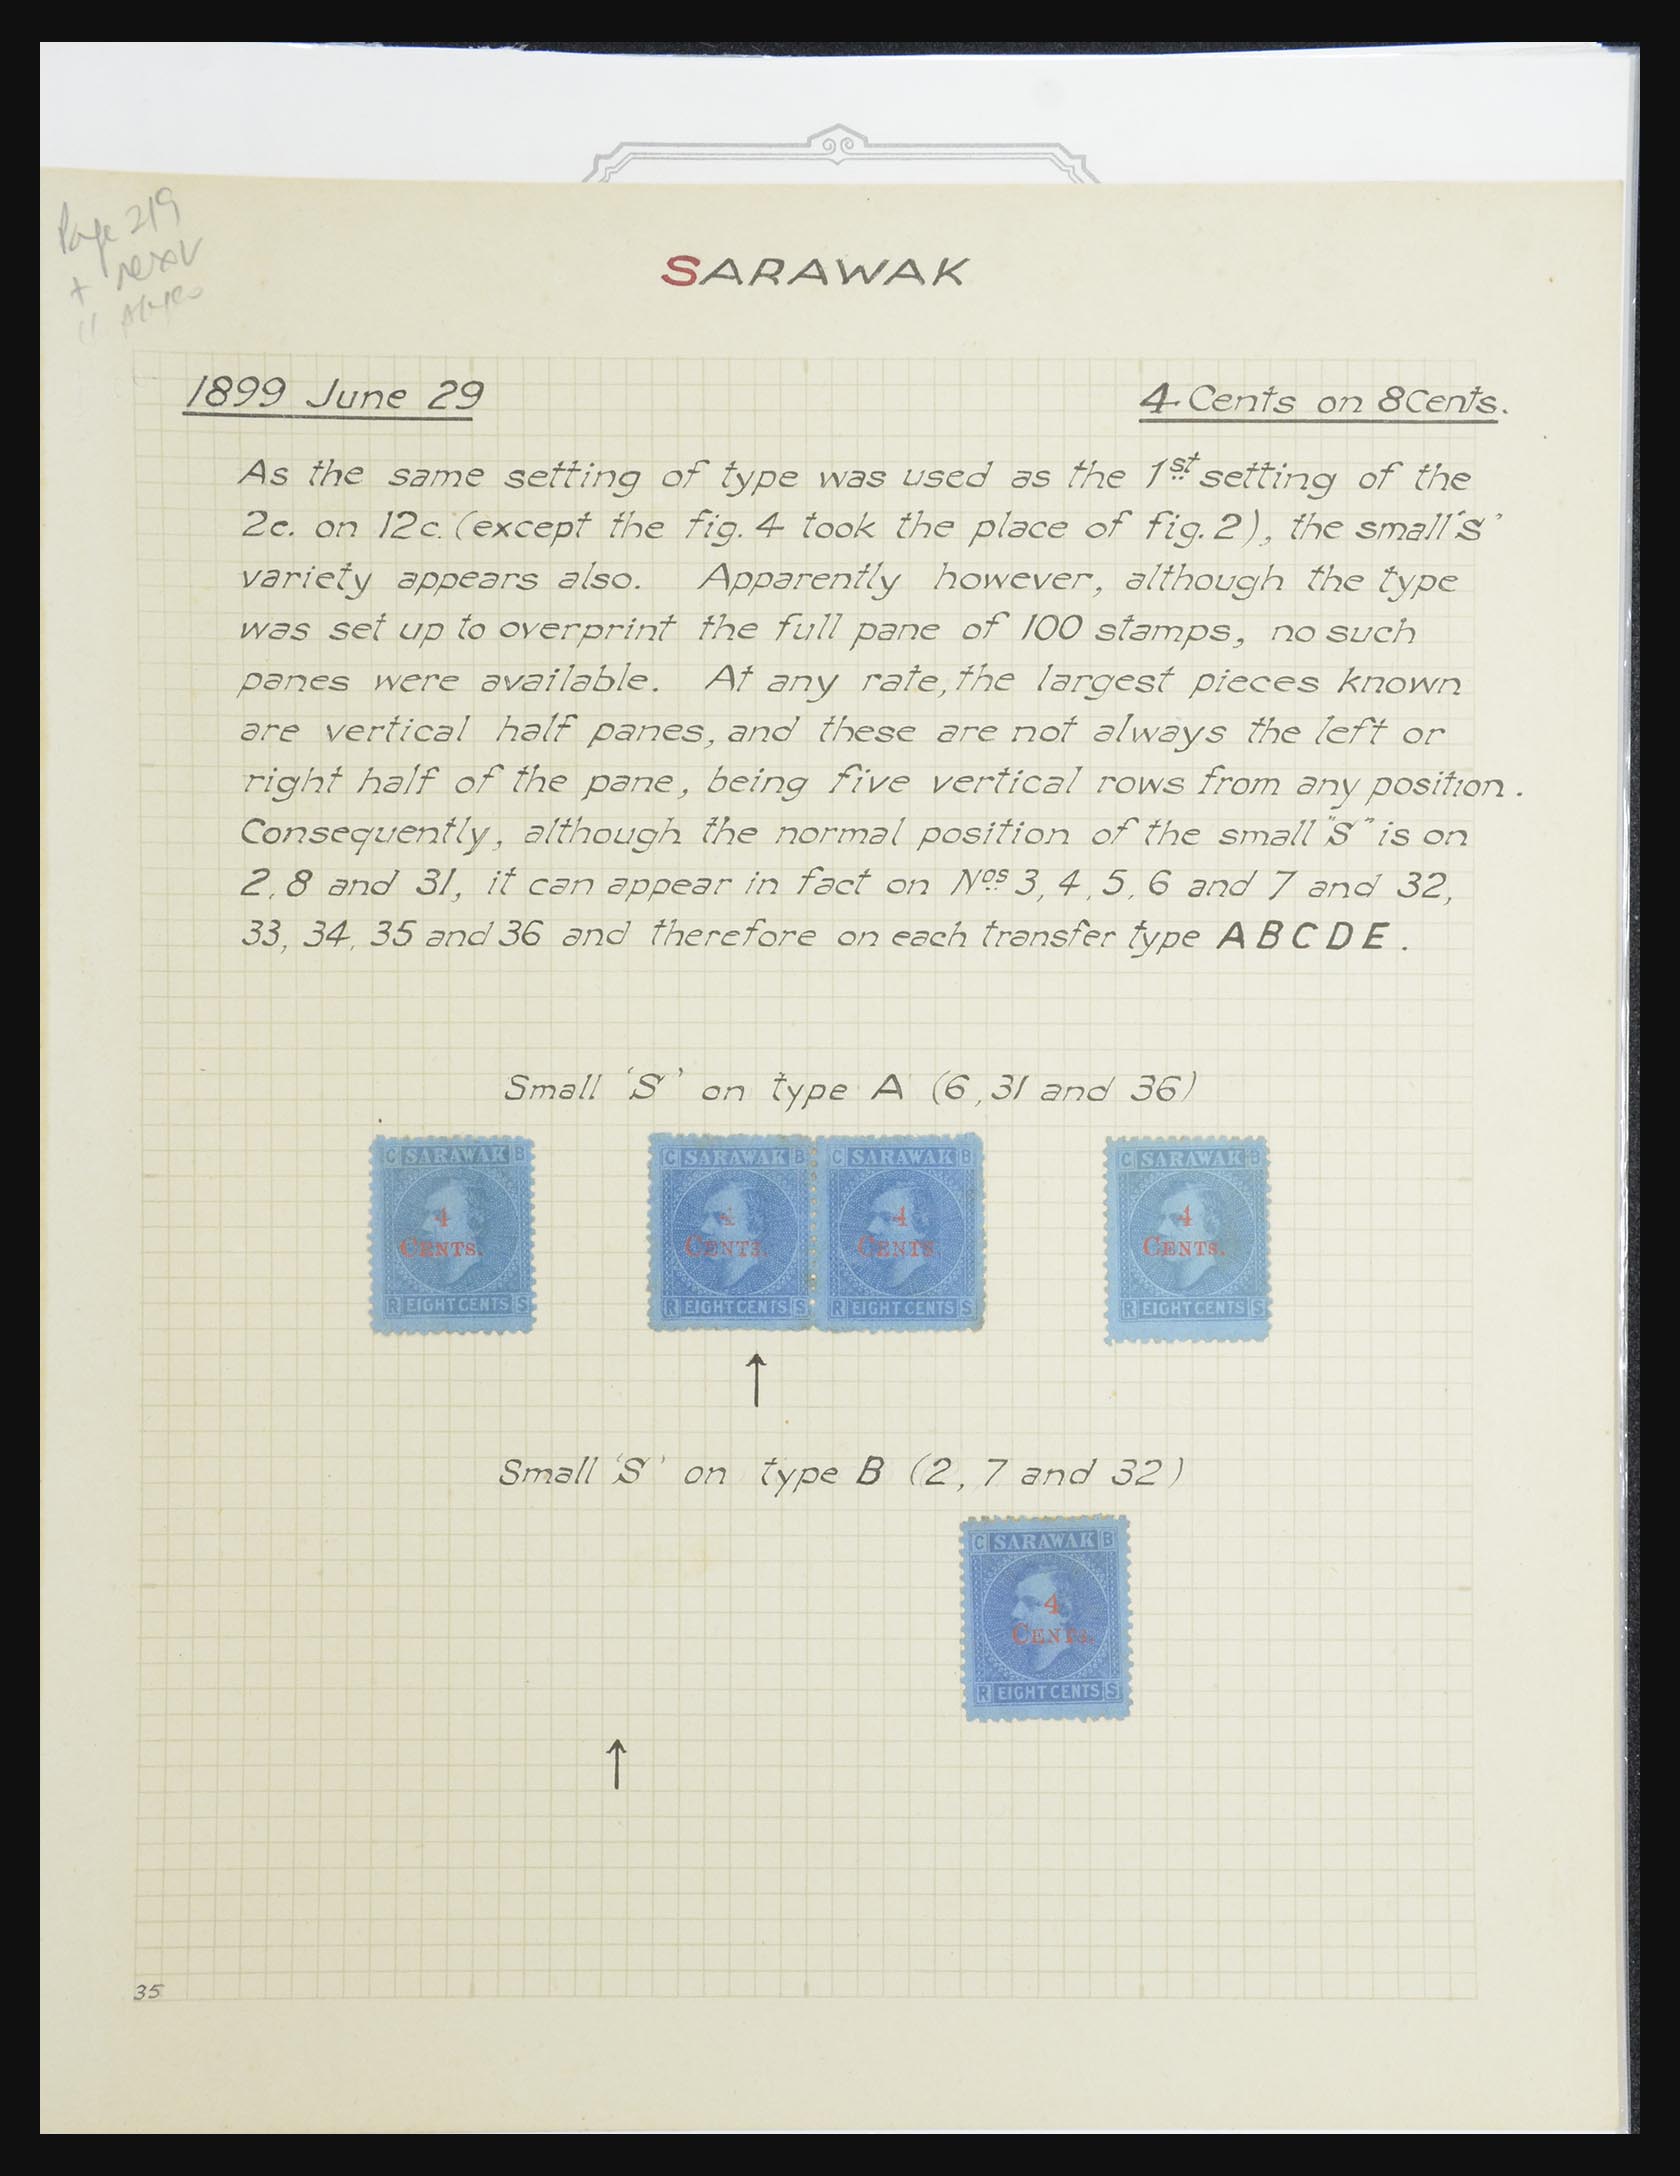 Page 219
+ 
SARAWAK
1899 June 29
4 Cents on 8Cents.
As the same setting of type was used as the 1st setting of the
2c. on 12c. (except the fig. 4 took the place of fig. 2), the small "S"
variety appears also. Apparently however, although the type
was set up to overprint the full pane of 100 stamps, no such
panes were available. At any rate, the largest pieces known
are vertical half panes, and these are not always the left or
right half of the pane, being five vertical rows from any position.
Consequently, although the normal position of the small "S" is on
2, 8 and 31, it can appear in fact on Nos 3, 4, 5, 6 and 7 and 32,
33, 34, 35 and 36 and therefore on each transfer type A B C D E.
Small 'S' on type A (6, 31 and 36)
C SARAWAK B
4
CENTS.
R EIGHT CENTS S
C SARAWAK B
4
CENTS.
R EIGHT CENTS S
C SARAWAK B
4
CENTS.
R EIGHT CENTS S
C SARAWAK B
4
CENTS.
R EIGHT CENTS S
Small 'S' on type B (2, 7 and 32)
C SARAWAK B
4
CENTS.
R EIGHT CENTS S
35